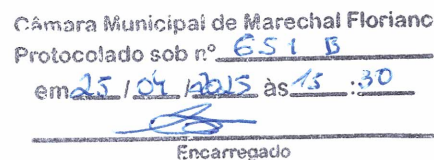 Câmara Municipal de Marechal Floriano
Protocolado sob nº 651 B
em 25 / 04 / 2025 às 15 : 30
Encarregado